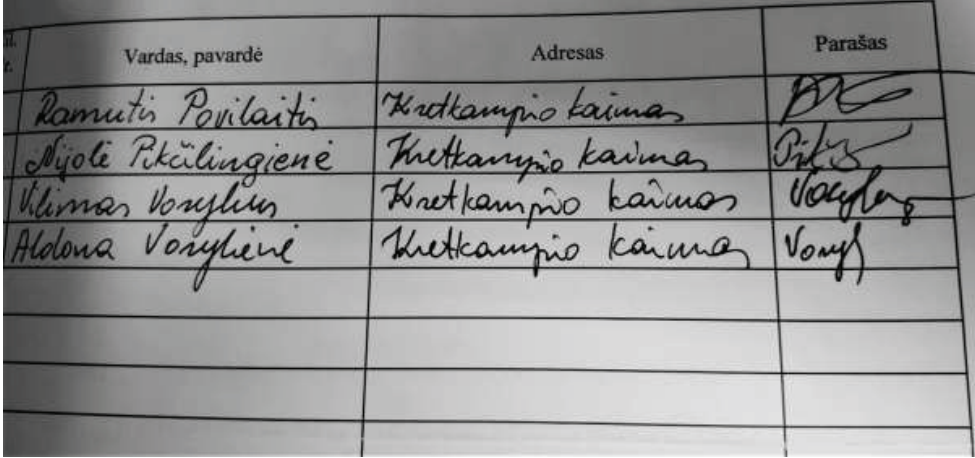 Vardas, pavardė Adresas Parašas
Ramutis Povilaitis Kretkampio kaimas
Nijolė Pikčilingienė Kretkampio kaimas
Vilimas Vosylius Kretkampio kaimas
Aldona Vosylienė Kretkampio kaimas